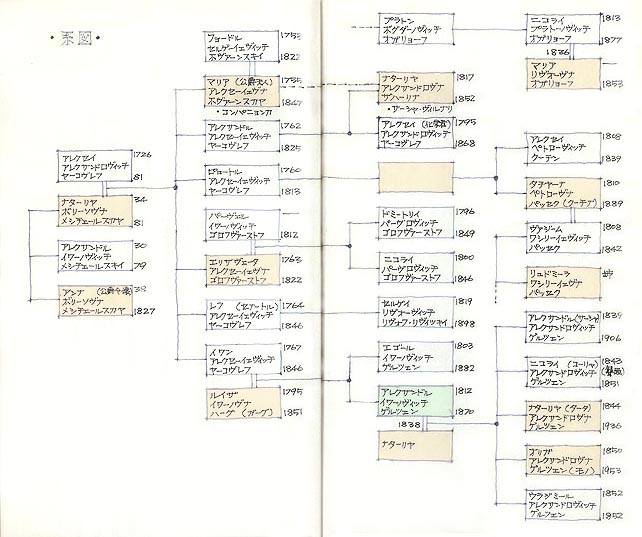 系図
フョードル 175
セルゲーイェヴィッチ
ホヴァーンスキイ 182
マリア (公爵夫人) 1755
アレクセーイェヴナ
ホヴァーンスカヤ 1847
・コンパニョンカ
アレクサンドル 1762
アレクセーイェヴィッチ
ヤーコヴレフ 1825
ピョートル 1760
アレクセーイェヴィッチ
ヤーコヴレフ 1813
パーヴェル
イワーノヴィッチ
ゴロフヴァーストフ 1812
エリザヴェータ 1763
アレクセーイェヴナ
ゴロフヴァーストフ 1822
レフ (セナートル) 1764
アレクセーイェヴィッチ
ヤーコヴレフ 1846
イワン 1767
アレクセーイェヴィッチ
ヤーコヴレフ 1846
ルイザ 1795
イワーノヴナ
ハーグ (ガーグ) 1851
アレクセイ 1726
アレクサンドロヴィッチ
ヤーコヴレフ 81
ナターリヤ 34
ボリーソヴナ
メシチェールスカヤ 81
アレクサンドル 30
イワーノヴィッチ
メシチェールスキイ 79
アンナ
ボリーソヴナ
メシチェールスカヤ 1827
プラトン
ボグダーノヴィッチ
オガリョーフ
ナターリヤ 1817
アレクサンドロヴナ
ザハーリナ 1852
・サーシャ・ヴィルブリ
アレクセイ (化学者) 1795
アレクサンドロヴィッチ
ヤーコヴレフ 1868
ドミートリイ 1796
パーヴロヴィッチ
ゴロフヴァーストフ 1849
ニコライ 1800
パーヴロヴィッチ
ゴロフヴァーストフ 1846
セルゲイ 1819
リヴォーヴィッチ
リヴォフ・リヴィツキイ 1898
エゴール 1803
イワーノヴィッチ
ゲルツェン 1882
アレクサンドル 1812
イワーノヴィッチ
ゲルツェン 1870
1838
ナターリヤ
ニコライ 1813
プラトーノヴィッチ
オガリョーフ 1877
1836
マリア
リヴォーヴナ
オガリョーフ 1853
アレクセイ 1808
ペトローヴィッチ
クーチン 1839
タチヤーナ 1810
ペトローヴナ
パッセク (クーチナ) 1889
ヴァジーム 1808
ワシーリイェヴィッチ
パッセク 1842
リュドミーラ 姉
ワシーリイェヴナ
パッセク
アレクサンドル(サーシャ) 1839
アレクサンドロヴィッチ
ゲルツェン 1906
ニコライ (コーリャ) 1843
アレクサンドロヴィッチ
ゲルツェン 1851
ナターリヤ (タータ) 1844
アレクサンドロヴナ
ゲルツェン 1936
オリガ 1850
アレクサンドロヴナ
ゲルツェン (モノ) 1953
ウラジミール 1852
アレクサンドロヴィッチ
ゲルツェン 1852